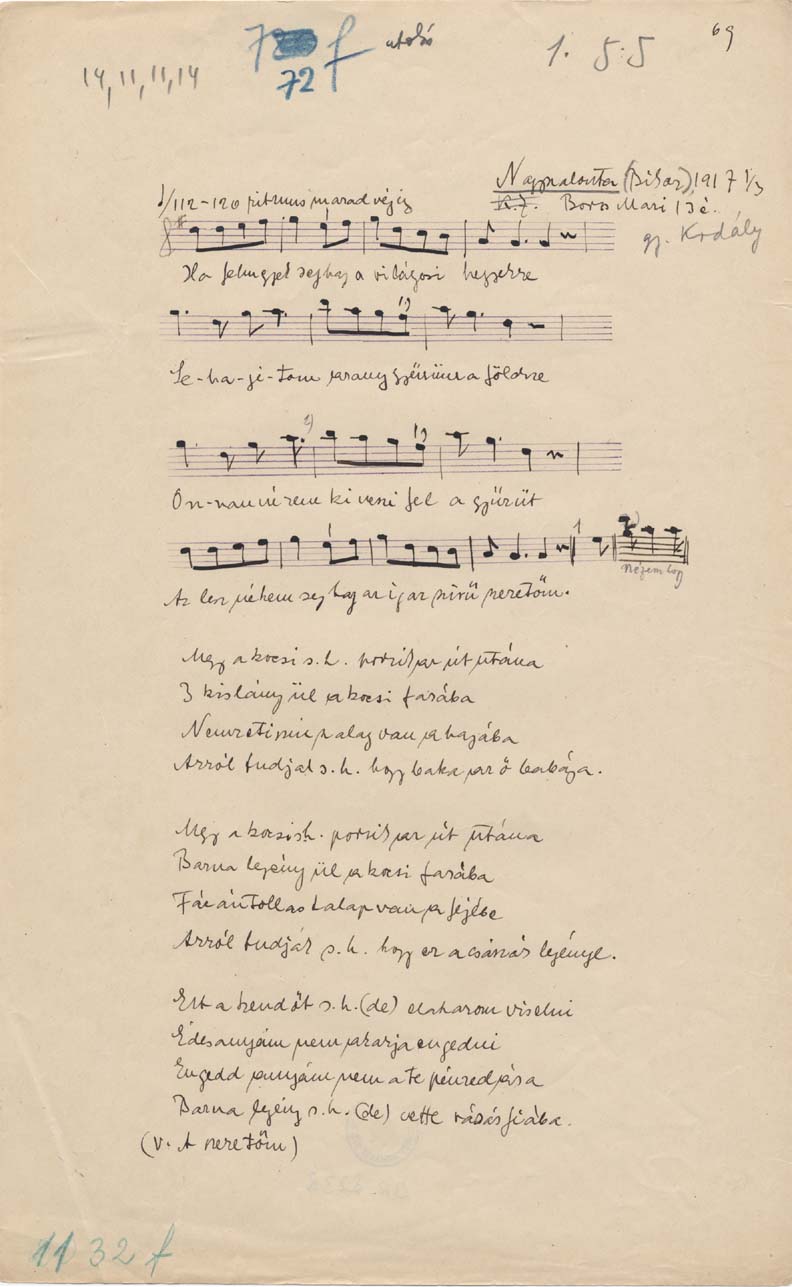 69
14, 11, 11, 14
72 f utolsó
1. 5 5
Nagyszalonta (Bihar) 1917 1/3
♩/112-120 ritmus marad végig
K.Z. Boros Mari 13 é.
gy. Kodály
Ha felmegyek sejhaj a világosi hegyekre
Le-ha-ji-tom arany gyűrűm a földre
On-nan nézem ki veszi fel a gyűrűt
Az lesz nékem sejhaj az igaz szívű szeretőm.
nézem hogy
Megy a kocsi s.h. porzik az út utána
3 kislány ül a kocsi farába
Nemzetiszin szalag van a hajába
Arról tudják s.h. hogy baka az ő babája.
Megy a kocsi s.h. porzik az út utána
Barna legény ül a kocsi farába
Fácántollas kalap van a fejébe
Arról tudják s.h. hogy ez a császár legénye.
Ezt a kendőt s.h. (de) el akarom viselni
Édesanyám nem akarja engedni
Engedd anyám nem a te pénzed ára
Barna legény s.h. (de) vette rózsás fiába.
(v. A szeretőm)
1132 f